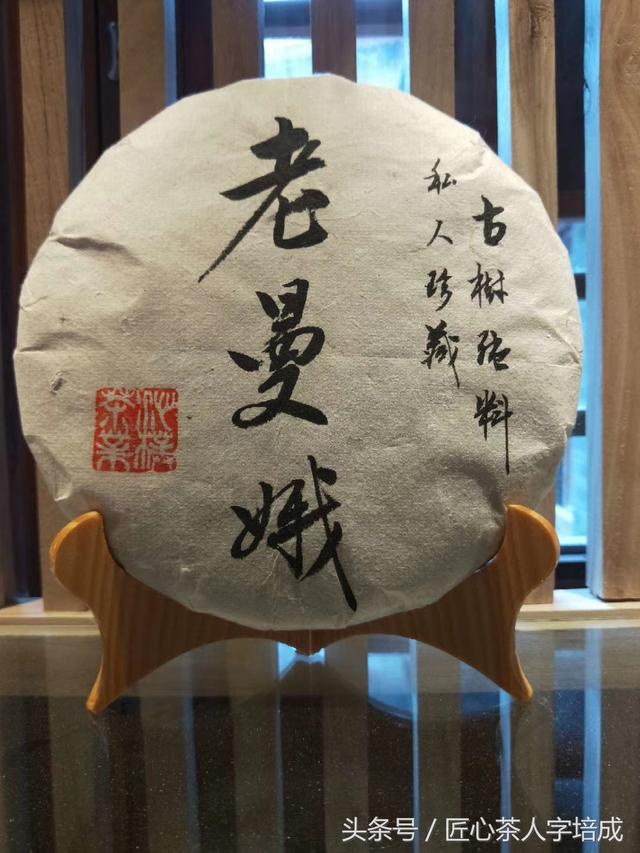 古樹純料
私人珍藏
老曼娥
茶業
头条号 / 匠心茶人字培成